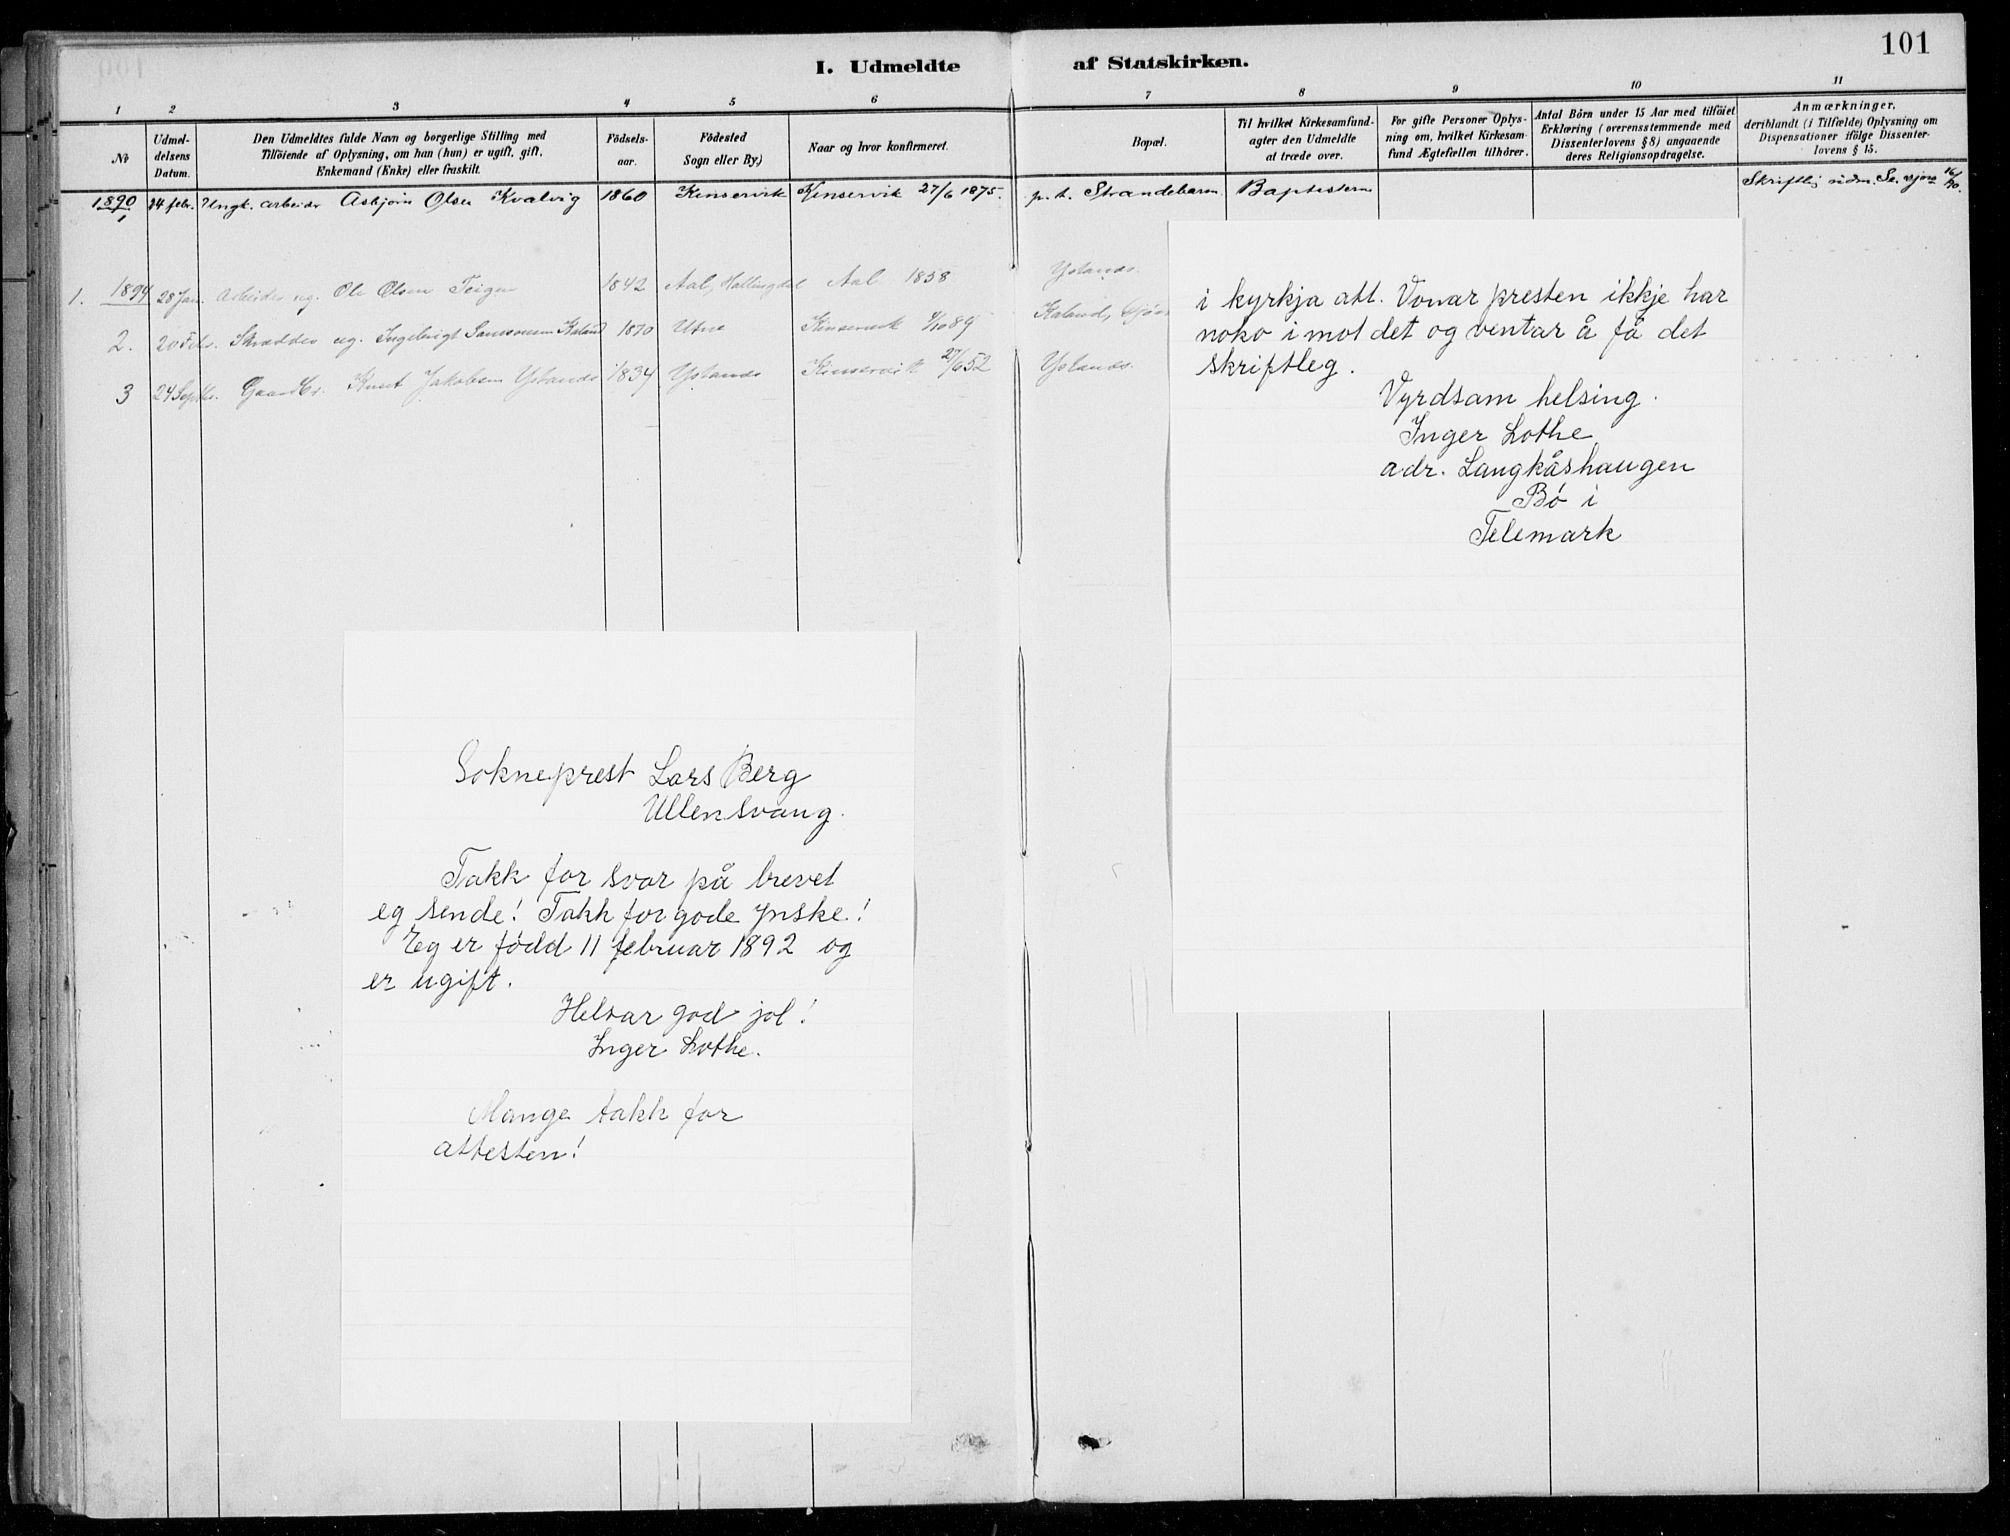 101
I. Udmeldte af Statskirken.
1 2 3 4 5 6 7 8 9 10 11
№
Udmel-
delsens
Datum.
Den Udmeldtes fulde Navn og borgerlige Stilling med
Tilföiende af Oplysning, om han (hun) er ugift, gift,
Enkemand (Enke) eller fraskilt.
Födsels-
aar.
Födested
Sogn eller By.)
Naar og hvor konfirmeret.
Bopæl.
Til hvilket Kirkesamfund-
agter den Udmeldte
at træde over.
For gifte Personer Oplys-
ning om, hvilket Kirkesam-
fund Ægtefællen tilhörer.
Antal Börn under 15 Aar med tilföiet
Erklæring (overensstemmende med
Dissenterlovens § 8) angaaende
deres Religionsopdragelse.
Anmærkninger,
deriblandt (i Tilfælde) Oplysning om
Dispensationer ifölge Dissenter-
lovens § 15.
1890 1 24 febr. Ungk. arbeider Asbjørn Olsen Kvalvig 1860 Kinservik Kinservik 27/6 1875. p. t. Strandebarm Baptisterne Skriftlig udm.
1. 1894 28 Jan. Arbeider ug. Ole Olsen Teigen 1842 Aal, Hallingdal Aal 1858 Ystands.
2. 20 Febr. Skrædder ug. Ingebrigt Samsonsen Kaland 1870 Utne Kinservik 4/10 89 Kaland,
3 24 Septbr. Gaardbr. Knut Jakobsen Ystands 1834 Ystands Kinservik 27/6 52 Ystands.
i kyrkja att. Vonar presten ikkje har
noko imot det og ventar å få det
skriftleg.
Vyrdsam helsing.
Inger Lothe
adr. Langkåshaugen
Bø i
Telemark
Sokneprest Lars Berg
Ullensvang.
Takk for svar på brevet
eg sende! Takk for gode ynske!
Eg er fødd 11 februar 1892 og
er ugift.
Helsar god jol!
Inger Lothe.
Mange takk for
attesten!